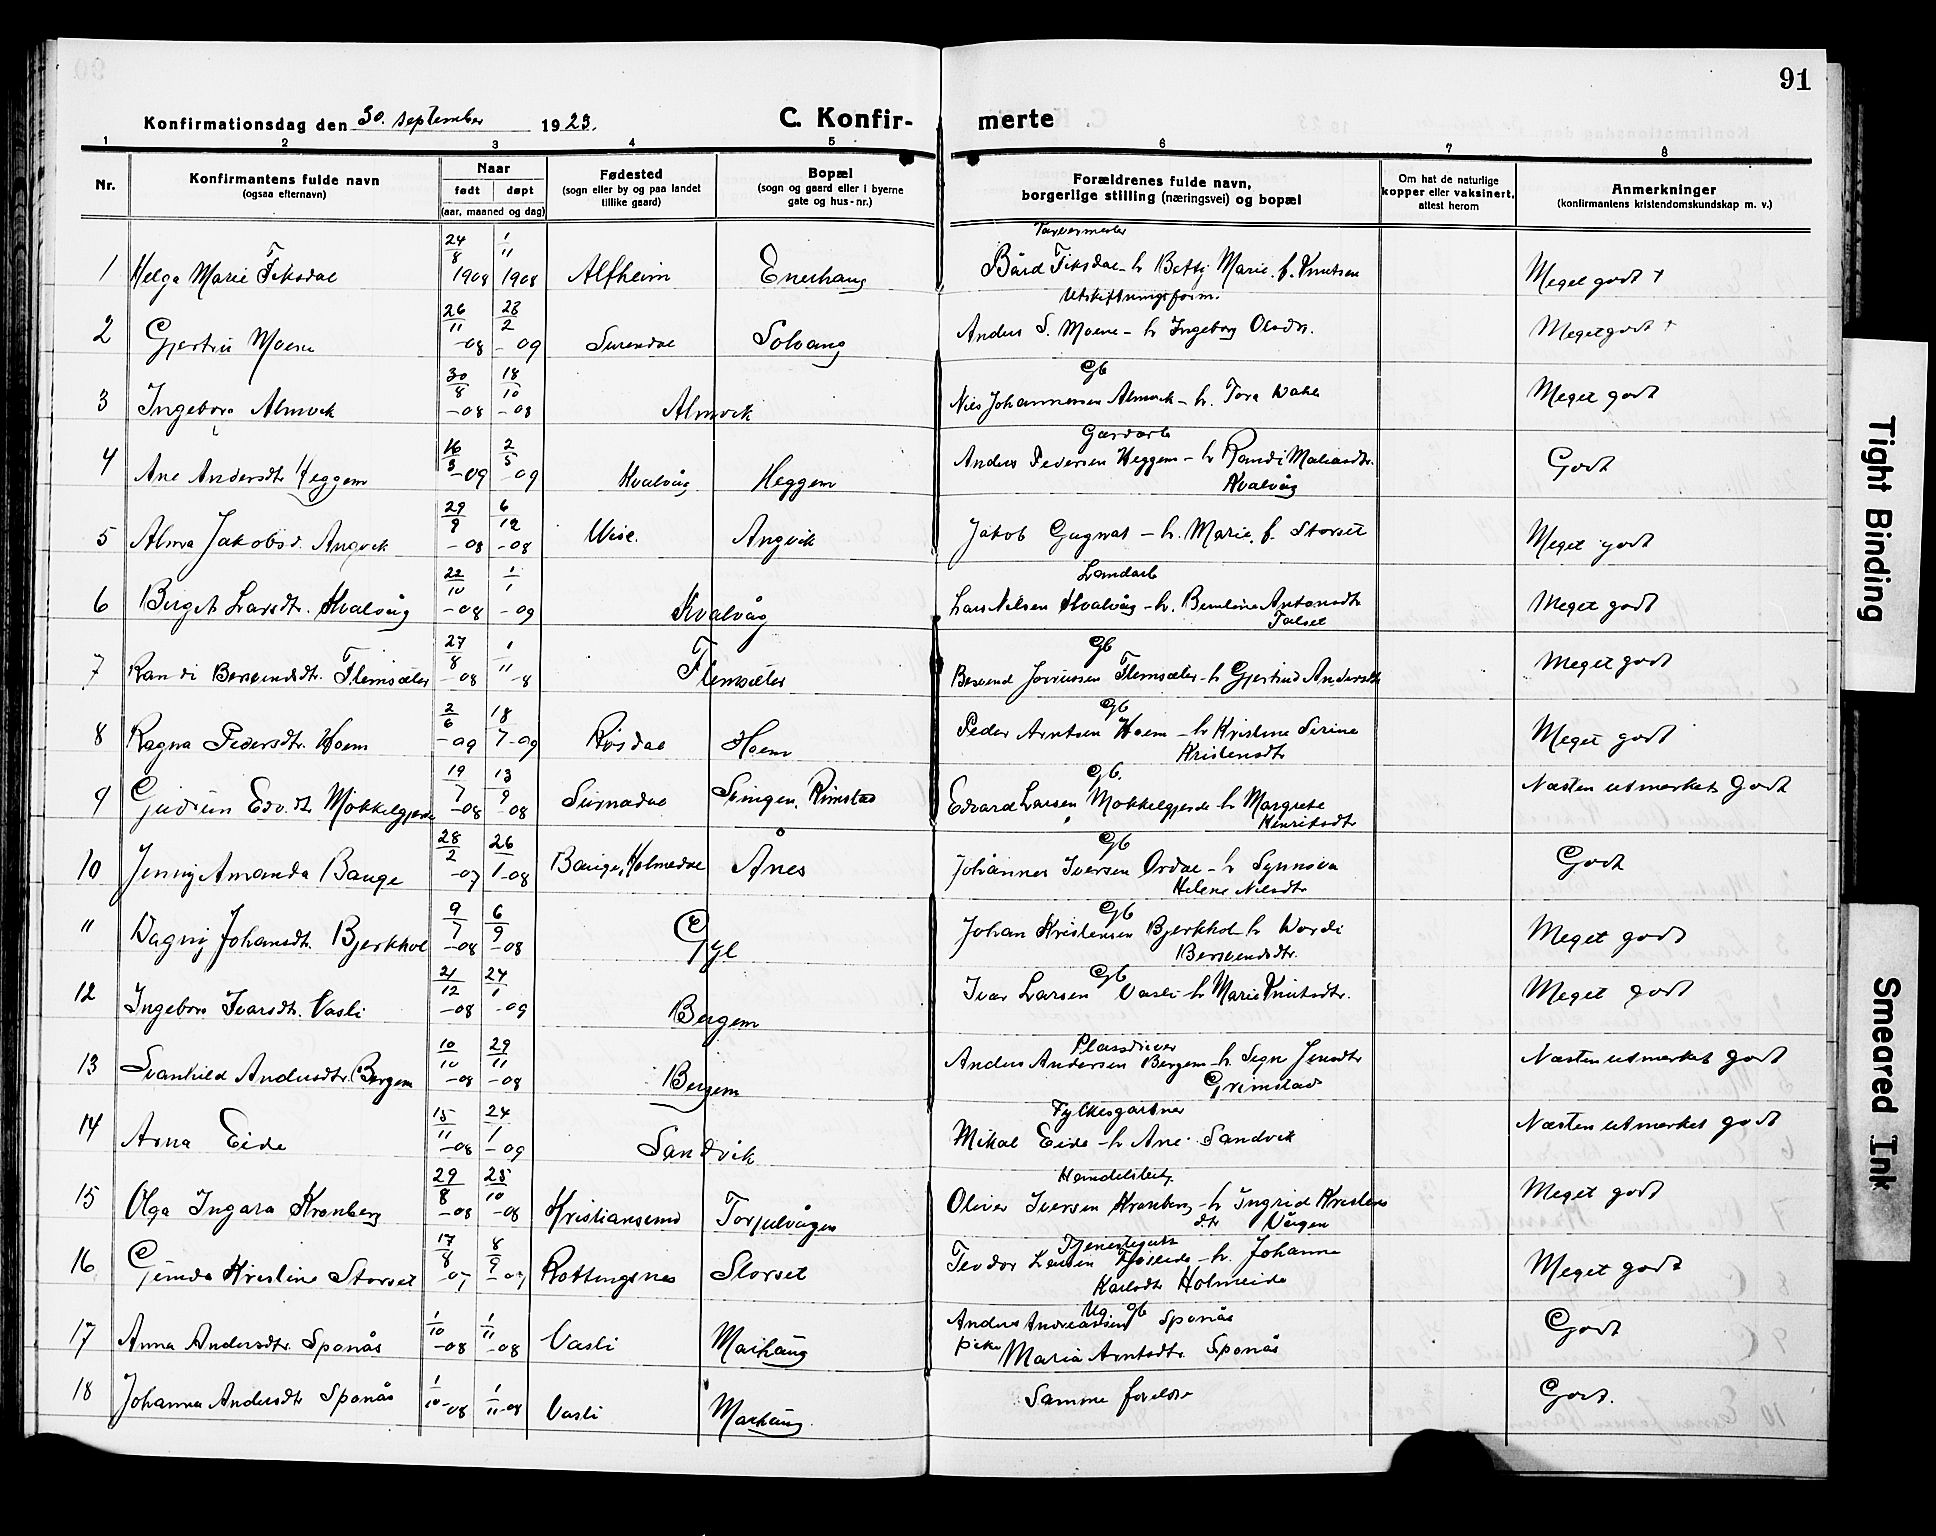 91
Konfirmationsdag den 30. september 1923.
C. Konfirmerte
1 2 3 4 5 6 7 8
Nr.
Konfirmantens fulde navn
(ogsaa efternavn)
Naar
født døpt
(aar, maaned og dag)
Fødested
(sogn eller by og paa landet
tillike gaard)
Bopæl
(sogn og gaard eller i byerne
gate og hus-nr.)
Forældrenes fulde navn,
borgerlige stilling (næringsvei) og bopæl
Om hat de naturlige
kopper eller vaksinert,
attest herom
Anmerkninger
(konfirmantens kristendomskundskap m. v.)
1 Helga Marie Fiksdal 24/8 1908 1/11 1908 Alfheim Enerhaug
Bård Fiksdal - h Betty Marie f. Knutsen Meget godt +
2 Gjertru Moene 26/11 -08 28/2 -09 Surendal Solvang
Utskiftningsform.
Anders S. Moene - h Ingeborg Olsdtr. Meget godt +
3 Ingeborg Almvik 30/8 -08 18/10 -08 Almvik
Gb
Nils Johannessen Almvik - h. Tora Wahl Meget godt
4 Ane Andersdtr Heggem 16/3 -09 2/5 -09 Kvalvåg Heggem
Gardarb
Anders Pedersen Heggem - h Randi Maliasdtr.
Kvalvåg Godt
5 Alma Jakobsd. Angvik 29/9 -08 6/12 -08 Angvik
Jakob Gagnat - h. Marie f. Storset Meget godt
6 Berget Larsdtr. Kvalvåg 22/10 -08 1/1 -09 Kvalvåg
Landarb
Lars Nilsen Kvalvåg - h. Antonsdtr
Talset Meget godt
7 Randi Bersvendsdtr. Flemsæter 27/8 -08 1/11 -8 Flemsæter
Gb
Bersvend Flemsæter - h Gjertrud Andersdtr Meget godt
8 Ragna Pedersdtr. Hoem 2/6 -09 18/7 -09 Røsdal Hoem
Gb
Peder Arntsen Hoem - h Kristine Serine
Kristensdtr Meget godt
9 Gudrun Edv.dtr Møkkelgjerde 19/7 -08 13/9 -08 Surnadal Svingen, Rimstad
Gb.
Edvard Larsen Møkkelgjerde h Margrete
Henriksdtr Næsten utmerket godt
10 Jenny Amanda Bauge 28/2 -07 26/1 -08 Bauge, Holmedal Ånes
Gb
Johannes Iversen Ørdal - h Synnøva
Helene Nilsdtr Godt
11 Dagny Johansdtr. Bjerkhol 9/7 -08 6/9 -08 Gyl
Gb
Johan Kristensen Bjerkhol h Wordi
Bersvendsdtr. Meget godt
12 Ingeborg Ivarsdtr. Vasli 21/12 -08 24/1 -09 Bergem
Gb
Ivar Larsen Vasli h Marie Knutsdtr. Meget godt
13 Svanhild Andersdtr. Bergem 10/10 -08 29/11 -08 Bergem
Plassdriver
Anders Andersen Bergem - h. Signe Jensdtr
Grimstad Næsten utmerket godt
14 Arna Eide 15/11 -08 24/1 -09 Sandvik
Fylkesgartner
Mikal Eide - h Ane Sandvik Næsten utmerket godt
15 Olga Ingara Kronberg 29/8 -08 25/10 -08 Kristiansund Torjulvågen
Handelsbetj.
Oliver Iversen Kronberg - h Ingrid Kristens
dtr Vågen Meget godt
16 Gunda Kristine Storset 17/8 -07 8/9 -07 Rottungsnes Storset
Tjenestegutt
Teodor Larsen - h. Johanna
Karlsdtr Holmeide Meget godt
17 Anna Andersdtr. Sponås 1/10 -08 1/11 -08 Vasli Maihaug
Ug. gb
Anders Andreassen Sponås
pike Maria Arntsdtr. Sponås Godt
18 Johanna Andersdtr Sponås 1/10 -08 1/11 -08 Vasli Maihaug
Samme foreldre Godt.
Tight Binding
Smeared Ink